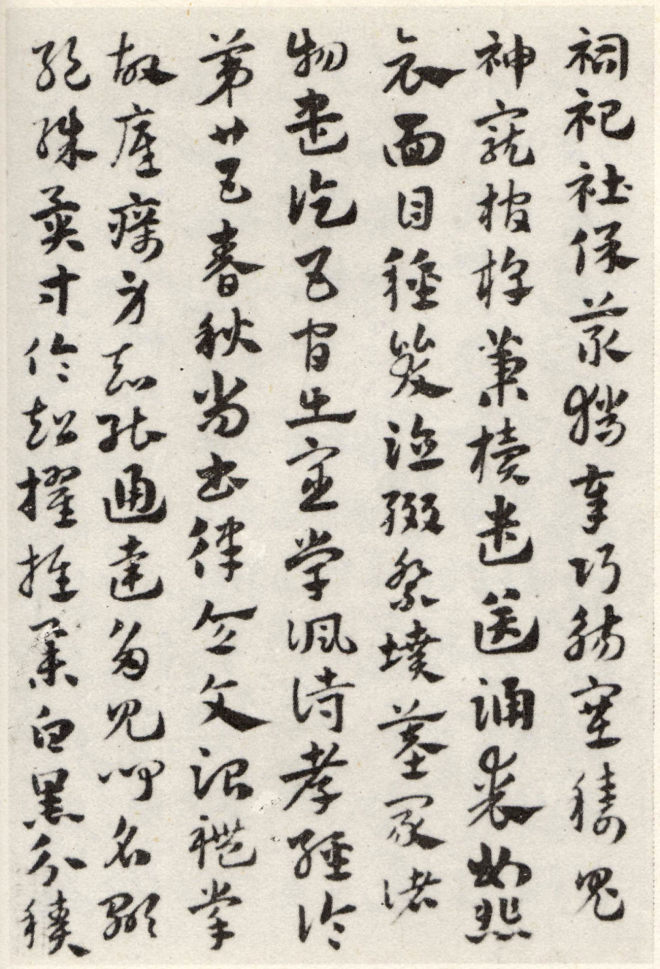 祠祀社保叢獵奉謁禓塞禱鬼
神寵棺椁槥櫝遣送踊喪弔悲
哀面目種哭泣醊祭墳墓冢諸
物盡訖五官出宦學諷詩孝經論
第廿五春秋尚書律令文治禮掌
故底厲身知能通達多見聞名顯
絕殊異等倫超擢推舉白黑分積